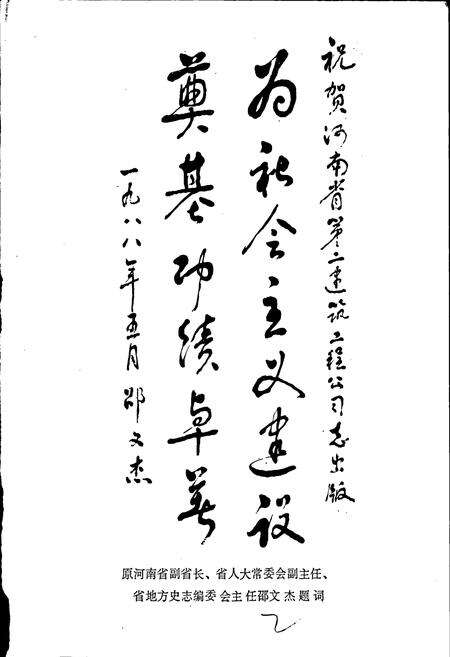 祝贺河南省第二建筑工程公司志出版
为社会主义建设
奠基功绩卓著
一九八八年五月 邵文杰
原河南省副省长、省人大常委会副主任、
省地方史志编委会主任邵文杰题词